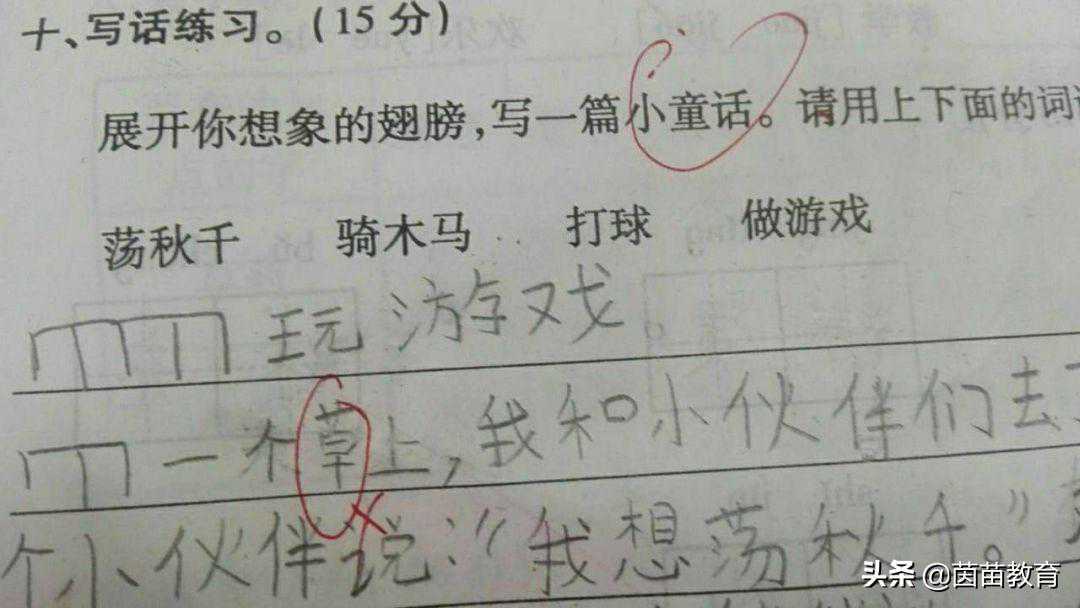 十、写话练习。(15分)
展开你想象的翅膀,写一篇小童话。请用上下面的词
荡秋千 骑木马 打球 做游戏
玩游戏
一个草上,我和小伙伴们去
个小伙伴说:“我想荡秋千。”
头条 @茵苗教育